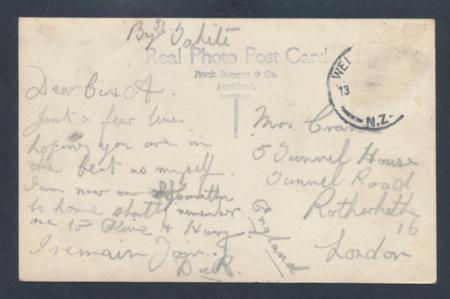 By SS Tahiti
Real Photo Post Card
Auckland.
WEL
13
N.Z.
Dear Cus A.
Just a few lines
hoping you are in
the best as myself.
I am now on
be home shortly remember
me to Olive & Harry
I remain Your
Dick
Mrs.
5 Tunnel House
Tunnel Road
Rotherhithe
16
London
England